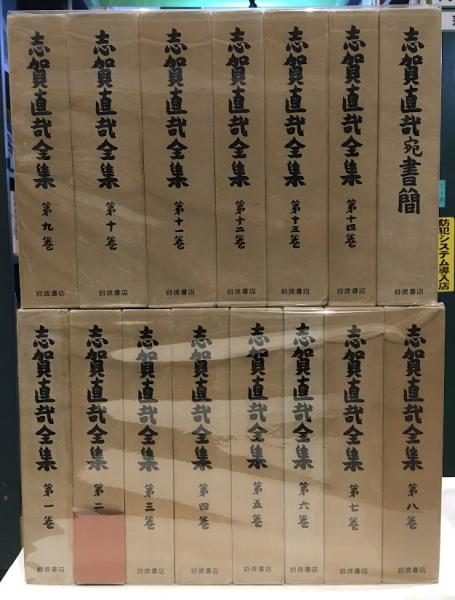 志賀直哉全集 第九巻 岩波書店
志賀直哉全集 第十巻 岩波書店
志賀直哉全集 第十一巻 岩波書店
志賀直哉全集 第十二巻 岩波書店
志賀直哉全集 第十三巻 岩波書店
志賀直哉全集 第十四巻 岩波書店
志賀直哉宛書簡 岩波書店
防犯システム導入店
志賀直哉全集 第一巻 岩波書店
志賀直哉全集 第二
志賀直哉全集 第三巻 岩波書店
志賀直哉全集 第四巻 岩波書店
志賀直哉全集 第五巻 岩波書店
志賀直哉全集 第六巻 岩波書店
志賀直哉全集 第七巻 岩波書店
志賀直哉全集 第八巻 岩波書店